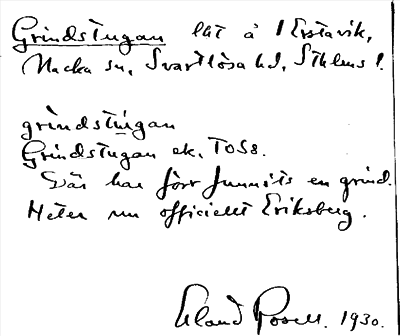 Grindstugan lht å 1 Erstavik,
Nacka sn, Svartlösa hd, Sthlms l.
grindstùgan
Grindstugan ek. TOS8.
Där har förr funnits en grind.
Heter nu officiellt Eriksberg.
Erland Rosell. 1930.